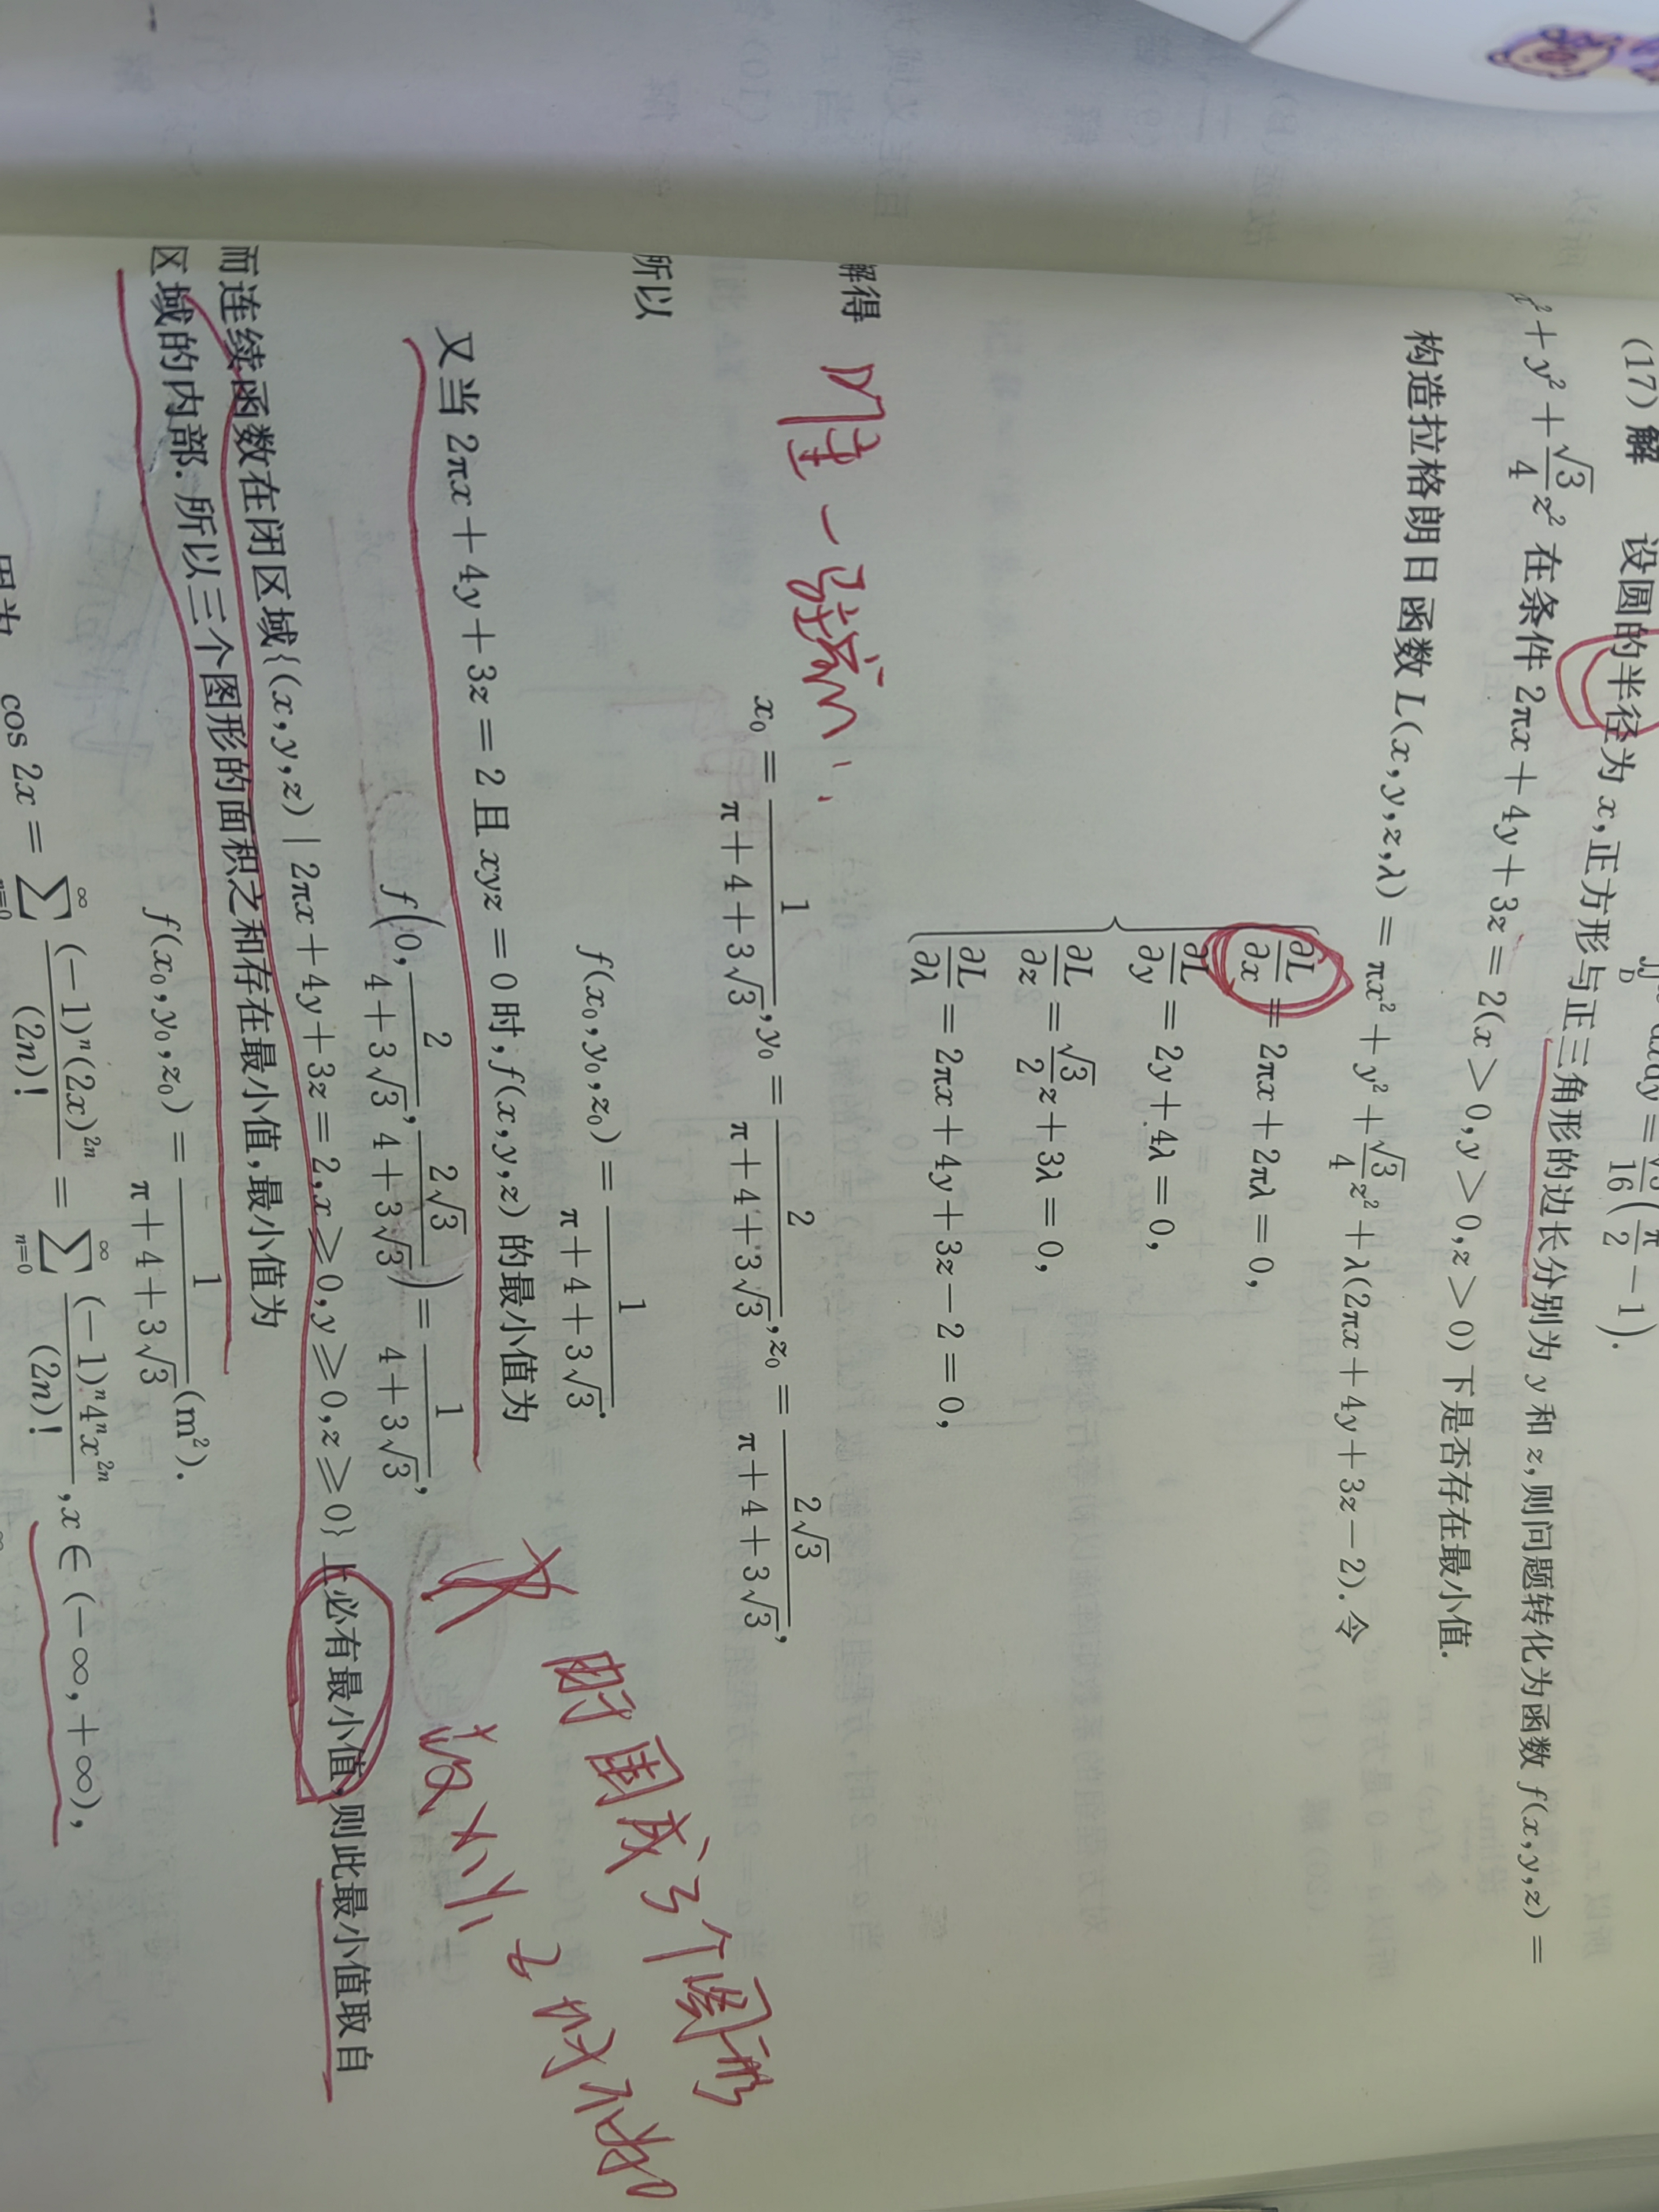 dxdy = √3/16 (π/2 − 1).
(17) 解 设圆的半径为 x, 正方形与正三角形的边长分别为 y 和 z, 则问题转化为函数 f(x,y,z) =
x² + y² + √3/4 z² 在条件 2πx + 4y + 3z = 2(x > 0, y > 0, z > 0) 下是否存在最小值.
构造拉格朗日函数 L(x,y,z,λ) = πx² + y² + √3/4 z² + λ(2πx + 4y + 3z − 2). 令
∂L/∂x = 2πx + 2πλ = 0,
∂L/∂y = 2y + 4λ = 0,
∂L/∂z = √3/2 z + 3λ = 0,
∂L/∂λ = 2πx + 4y + 3z − 2 = 0,
解得
唯一驻点
x₀ = 1/(π + 4 + 3√3), y₀ = 2/(π + 4 + 3√3), z₀ = 2√3/(π + 4 + 3√3),
所以
f(x₀,y₀,z₀) = 1/(π + 4 + 3√3).
又当 2πx + 4y + 3z = 2 且 xyz = 0 时, f(x,y,z) 的最小值为
f(0, 2/(4 + 3√3), 2√3/(4 + 3√3)) = 1/(4 + 3√3),
围成3个图形
而连续函数在闭区域{(x,y,z) | 2πx + 4y + 3z = 2, x ≥ 0, y ≥ 0, z ≥ 0} 上必有最小值, 则此最小值取自
区域的内部. 所以三个图形的面积之和存在最小值, 最小值为
f(x₀,y₀,z₀) = 1/(π + 4 + 3√3) (m²).
因为 cos 2x = ∑_{n=0}^{∞} (−1)ⁿ(2x)²ⁿ/(2n)! = ∑_{n=0}^{∞} (−1)ⁿ4ⁿx²ⁿ/(2n)!, x ∈ (−∞, +∞),